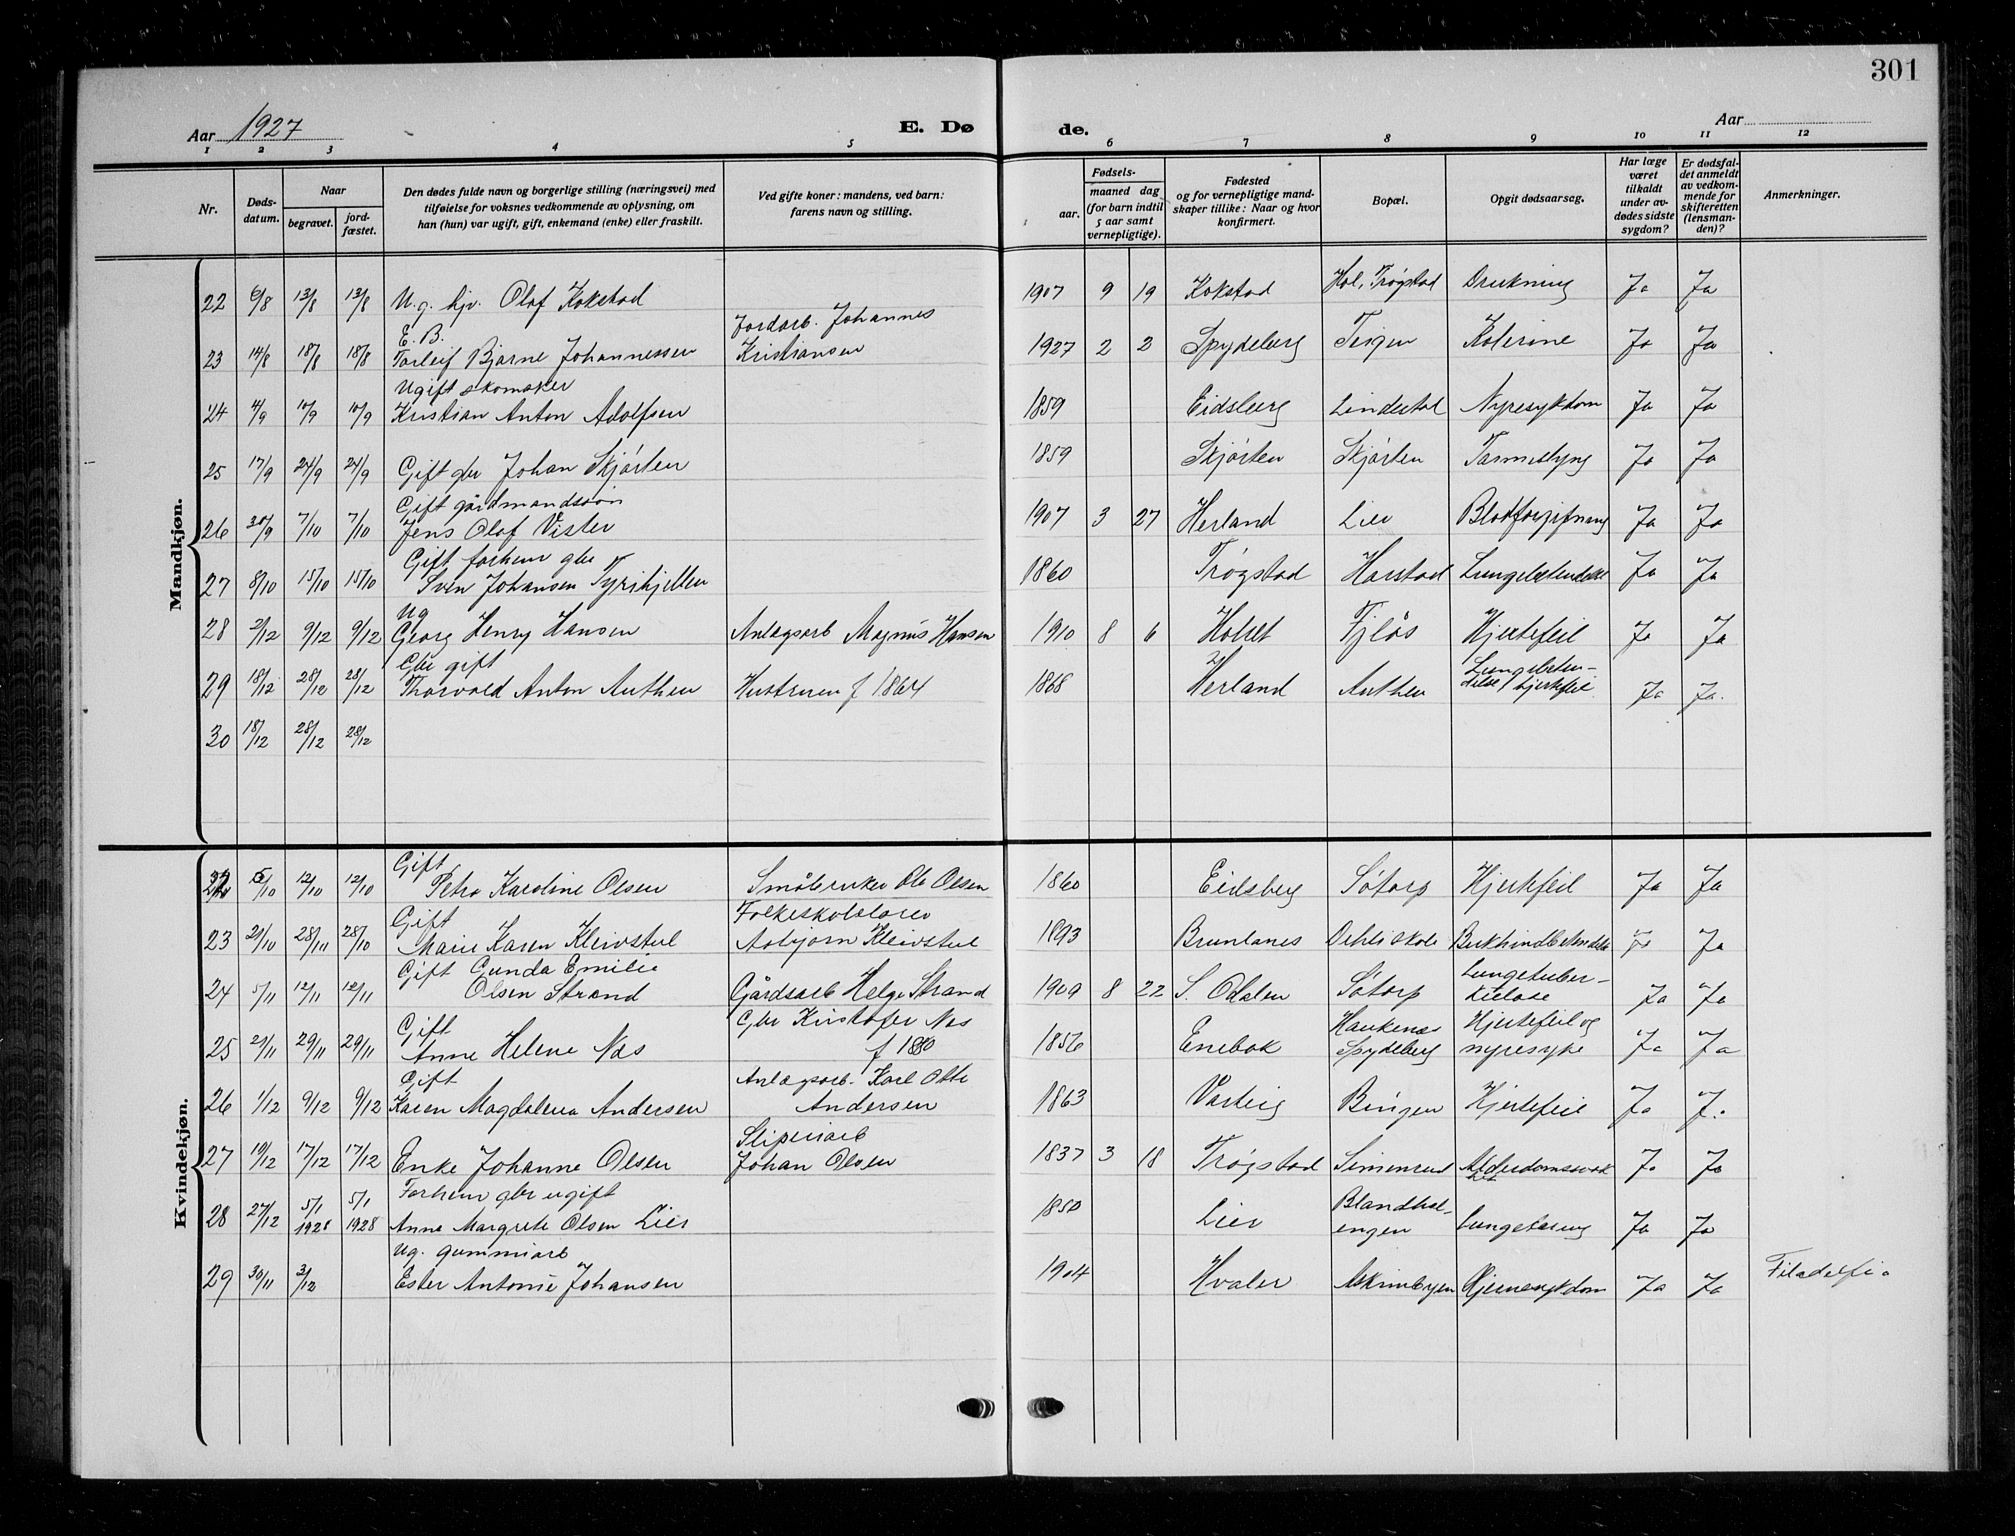 301
Aar 1927
E. Dø
de.
Aar
1 2 3 4 5 6 7 8 9 10 11 12
Nr.
Døds-
datum.
Naar
begravet.
jord-
fæstet.
Den dødes fulde navn og borgerlige stilling (næringsvei) med
tilføielse for voksnes vedkommende av oplysning, om
han (hun) var ugift, gift, enkemand (enke) eller fraskilt.
Ved gifte koner: mandens, ved barn:
farens navn og stilling.
Fødsels-
aar.
maaned dag
(for barn indtil
5 aar samt
vernepligtige).
Fødested
og for vernepligtige mand-
skaper tillike: Naar og hvor
konfirmert.
Bopæl.
Opgit dødsaarsag.
Har læge
været
tilkaldt
under av-
dødes sidste
sygdom?
Er dødsfal-
det anmeldt
av vedkom-
mende for
skifteretten
(lensman-
den)?
Anmerkninger.
Mandkjøn.
22 6/8 13/8 13/8 Ug. hjv. Olaf Kokstad 1907 9 19 Kokstad Hol, Trøgstad Drukning Ja Ja
E. B. Jordarb. Johannes
23 14/8 18/8 18/8 Torleif Bjarne Johannessen Kristiansen 1927 2 2 Spydeberg Teigen Kolerine Ja Ja
Ugift skomaker
24 4/9 10/9 10/9 Kristian Anton Adolfsen 1859 Eidsberg Lindestad Nyresykdom Ja Ja
25 17/9 24/9 24/9 Gift gbr Johan Skjørten 1859 Skjørten Skjørten Tarmslyng Ja Ja
Gift gårdmandssøn
26 30/9 7/10 7/10 Jens Olaf Vister 1907 3 27 Herland Lier Blodforgiftning Ja Ja
Gift forhenv gbr
27 8/10 15/10 15/10 Sven Johansen Tyrihjellen 1860 Trøgstad Harstad Lungebetendelse Ja Ja
Ug
28 2/12 9/12 9/12 Georg Henry Hansen Anlægsarb Magnus Hansen 1910 8 6 Holtet Fjløs Hjertefeil Ja Ja
Gbr gift Lungebeten-
29 18/12 28/12 28/12 Thorvald Anton Authen Hustruen f 1864 1868 Herland Authen delse, hjertefeil Ja Ja.
30 18/12 28/12 28/12
Kvindekjøn.
Gift
22 5/10 12/10 12/10 Petra Karoline Olsen Småbruker Ole Olsen 1860 Eidsberg Søtorp Hjertefeil Ja Ja
Gift Folkeskolelærer
23 21/10 28/11 28/10 Marie Karen Kleivstul Asbjørn Kleivstul 1893 Brunlanes Dehliskole Bukhindebetendelse Ja Ja
Gift Gunda Emilie Lungetuber-
24 5/11 12/11 12/11 Olsen Strand Gårdsarb Helge Strand 1909 8 22 S. Odalen Søtorp kulose Ja Ja
Gift Gbr Kristofer Næs Haukenæs Hjertefeil og
25 21/11 29/11 29/11 Anne Helene Næs f 1880 1856 Enebak Spydeberg nyresyke Ja Ja
Gift Anlægsarb. Karl Otto
26 1/12 9/12 9/12 Karen Magdalena Andersen Andersen 1863 Varteig Bingen Hjertefeil Ja J.
Sliperiarb
27 10/12 17/12 17/12 Enke Johanne Olsen Johan Olsen 1837 3 18 Trøgstad Simenrud Alderdomssvak
het Ja Ja
Forhenv gbr ugift Blandhol-
28 27/12 5/1 1928 5/1 1928 Anne Margrete Olsen Lier 1850 Lier engen Lungetæring Ja Ja
Ug. gummiarb
29 30/11 3/12 Ester Antonie Johansen 1904 Hvaler Askimbyen Hjernesykdom Ja Ja Filadelfia